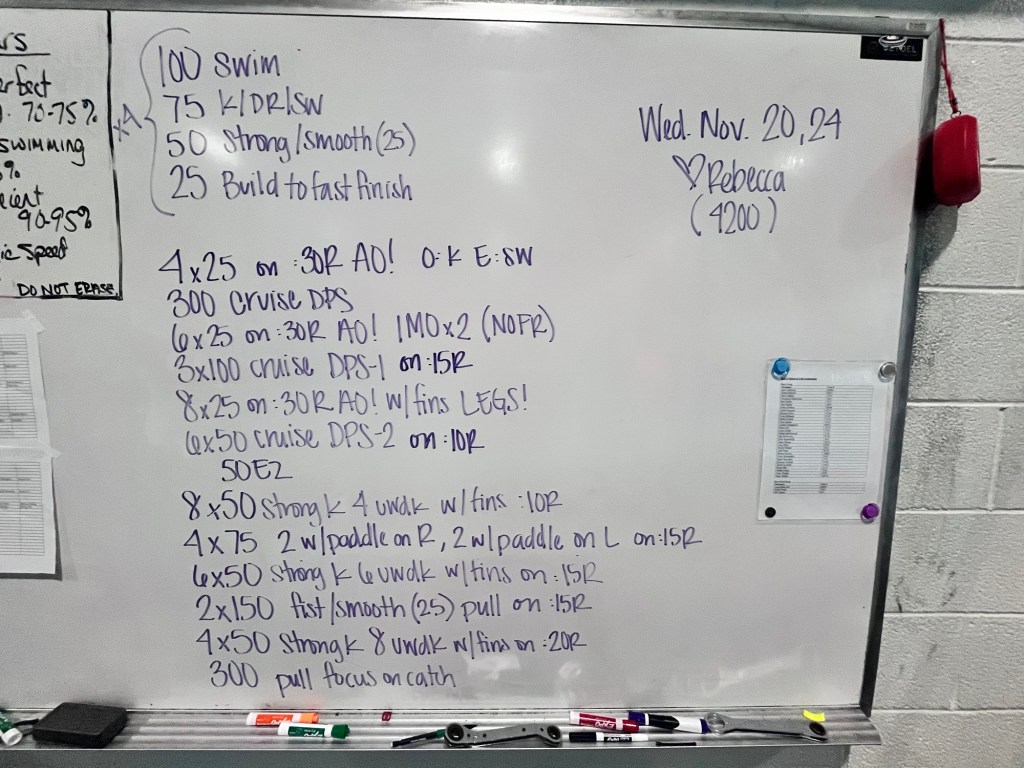 rs
erfect
70-75%
swimming
%
cient
90-95%
ic Speed
DO NOT ERASE.
x4
100 Swim
75 K/DR/SW
50 Strong/smooth (25)
25 Build to fast finish
Wed. Nov. 20, 24
♡Rebecca
(4200)
4x25 on :30R AO! O:K E:SW
300 cruise DPS
6x25 on :30R AO! IMO x2 (NOFR)
3x100 cruise DPS-1 on :15R
8x25 on :30R AO! w/fins LEGS!
6x50 cruise DPS-2 on :10R
50 EZ
8x50 strong k 4 uwdk w/fins :10R
4x75 2 w/paddle on R, 2 w/paddle on L on :15R
6x50 strong k 6 uwdk w/fins on :15R
2x150 fist/smooth (25) pull on :15R
4x50 strong k 8 uwdk w/fins on :20R
300 pull focus on catch
EXPO